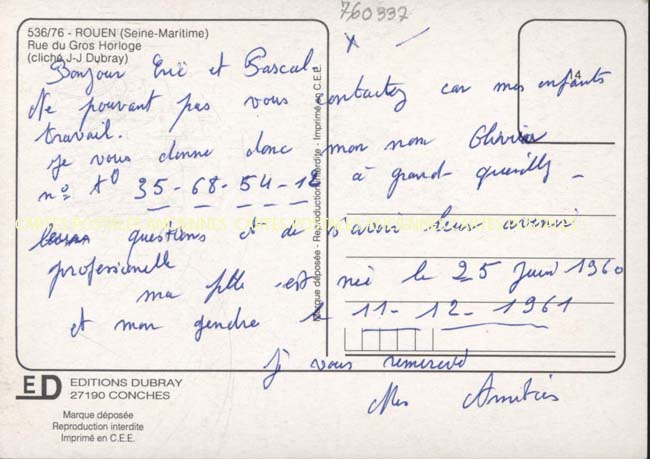 760337
536/76 - ROUEN (Seine-Maritime)
Rue du Gros Horloge
(cliché J-J Dubray)
14
Bonjour Eric et Pascal
Ne pouvant pas vous contactez car mes enfants
travail.
Je vous donne donc mon nom Olivier
n° t° 35-68-54-18 à grand quevilly -
questions et de savoir leur avenir
professionelle
ma fille est née le 25 Juin 1960
et mon gendre le 11-12-1961
Je vous remercie
Mes Amitiés
Marque déposée - Reproduction interdite - Imprimé en C.E.E.
ED EDITIONS DUBRAY
27190 CONCHES
Marque déposée
Reproduction interdite
Imprimé en C.E.E.